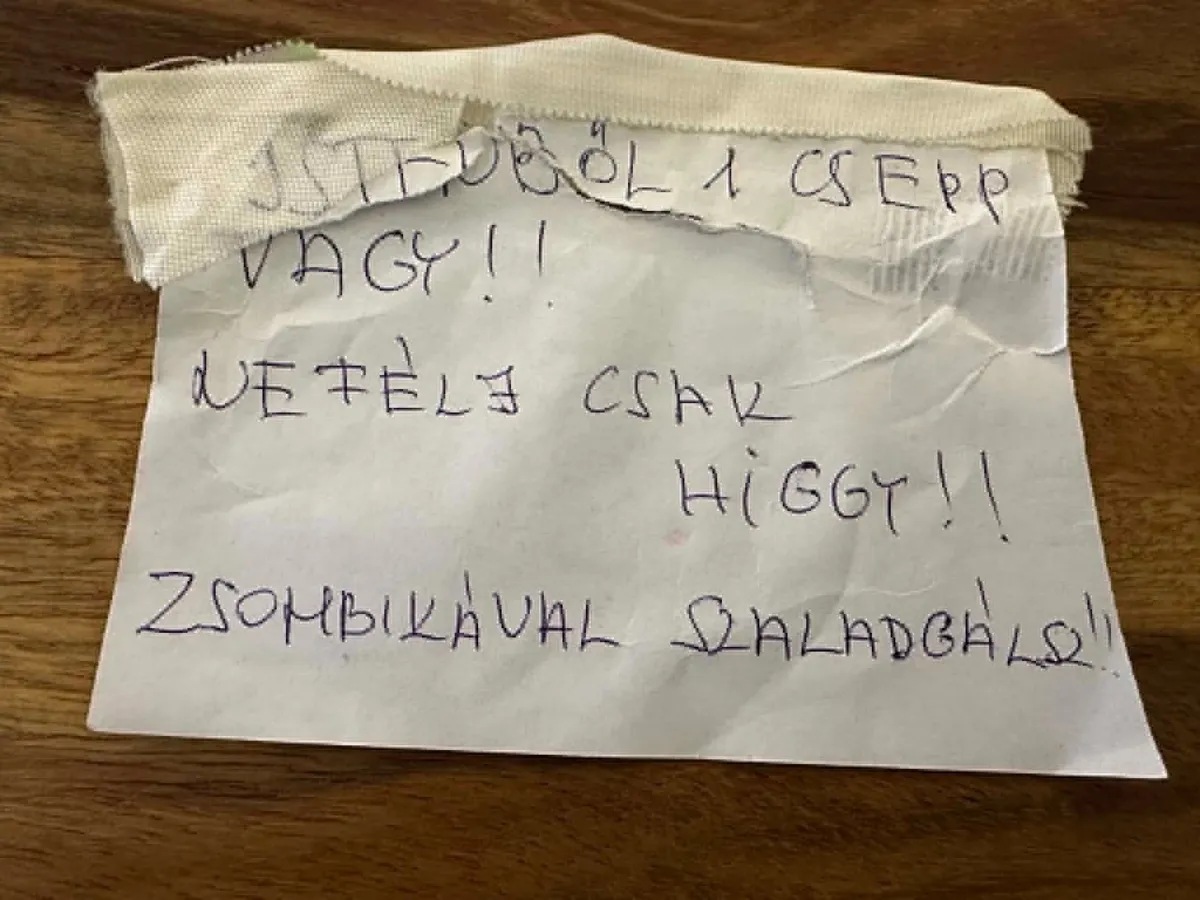 ISTENBŐL 1 CSEPP
VAGY!!
NE FÉLJ CSAK
HIGGY!!
ZSOMBIKÁVAL SZALADGÁLSZ!!